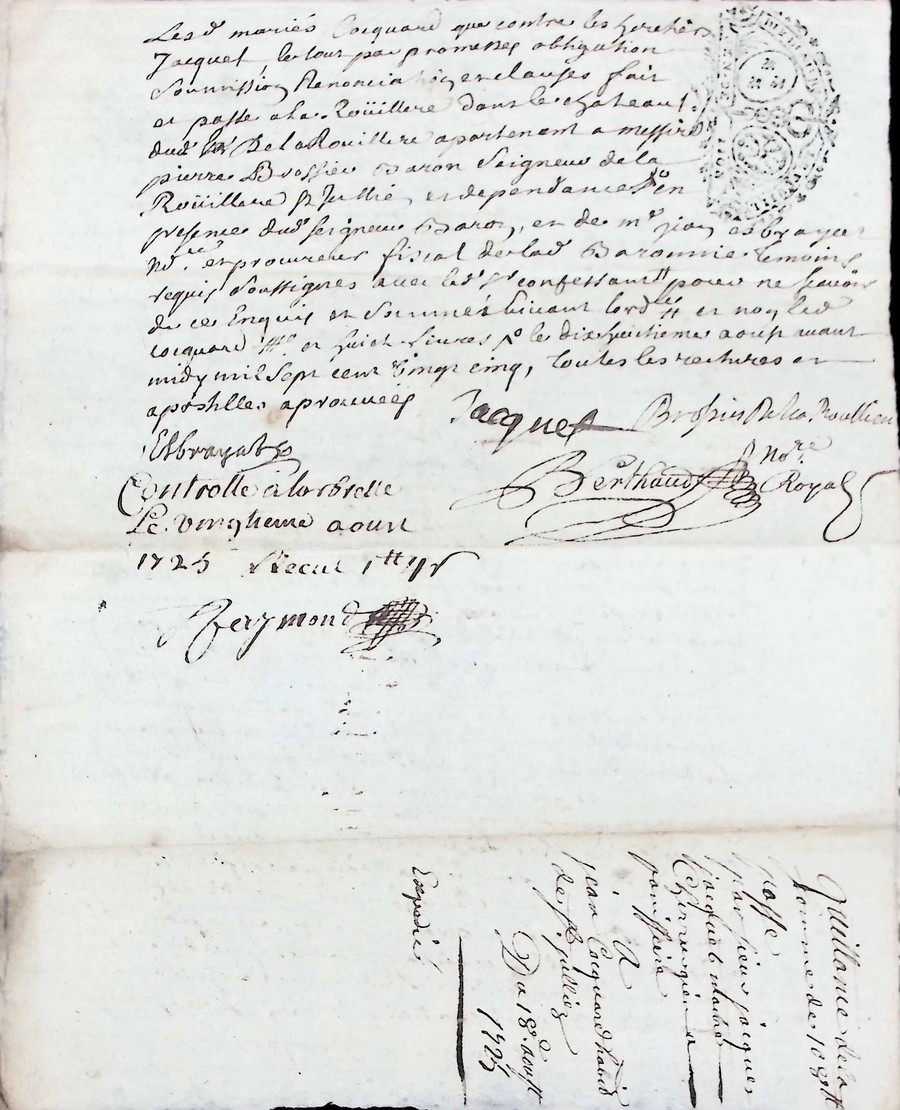 Les d. mariés Cocquard que contre les heritiers
Jacquet le tout par promesses obligation
Soumission Renonciation et clauses fait
et passé a la Roüillere dans le chateau
dud. De la Rouillere apartenant a messire
pierre Brossier Baron Seigneur de la
Roüillere St Jullié, et dependances en
presence dud. seigneur Baron, et de me jean esbrayat
et procureur fiscal de lad. Baronnie temoins
requis soussignés avec led. Sr confessant pour ne scavoir
de ce Enquis et Sommés suivant lord. et non led
cocquard et huict livres le dixhuitieme aoust avant
midy mil sept cent vingt cinq, toutes les ratures et
apostilles aprouvées
Jacquet Brossier De la Roullier
Esbrayat
Berthaud Nore Royal
Controllé a
Le vingtieme aoust
1725 Receu 1tt
Reymond
Quittance de la
somme de 108tt
passé
par sieur jacques
jacquet maitre
Chirurgien a
panissiere
A
jean Cocquard habit
de St jullien
Du 18e aoust
1725
Expedié